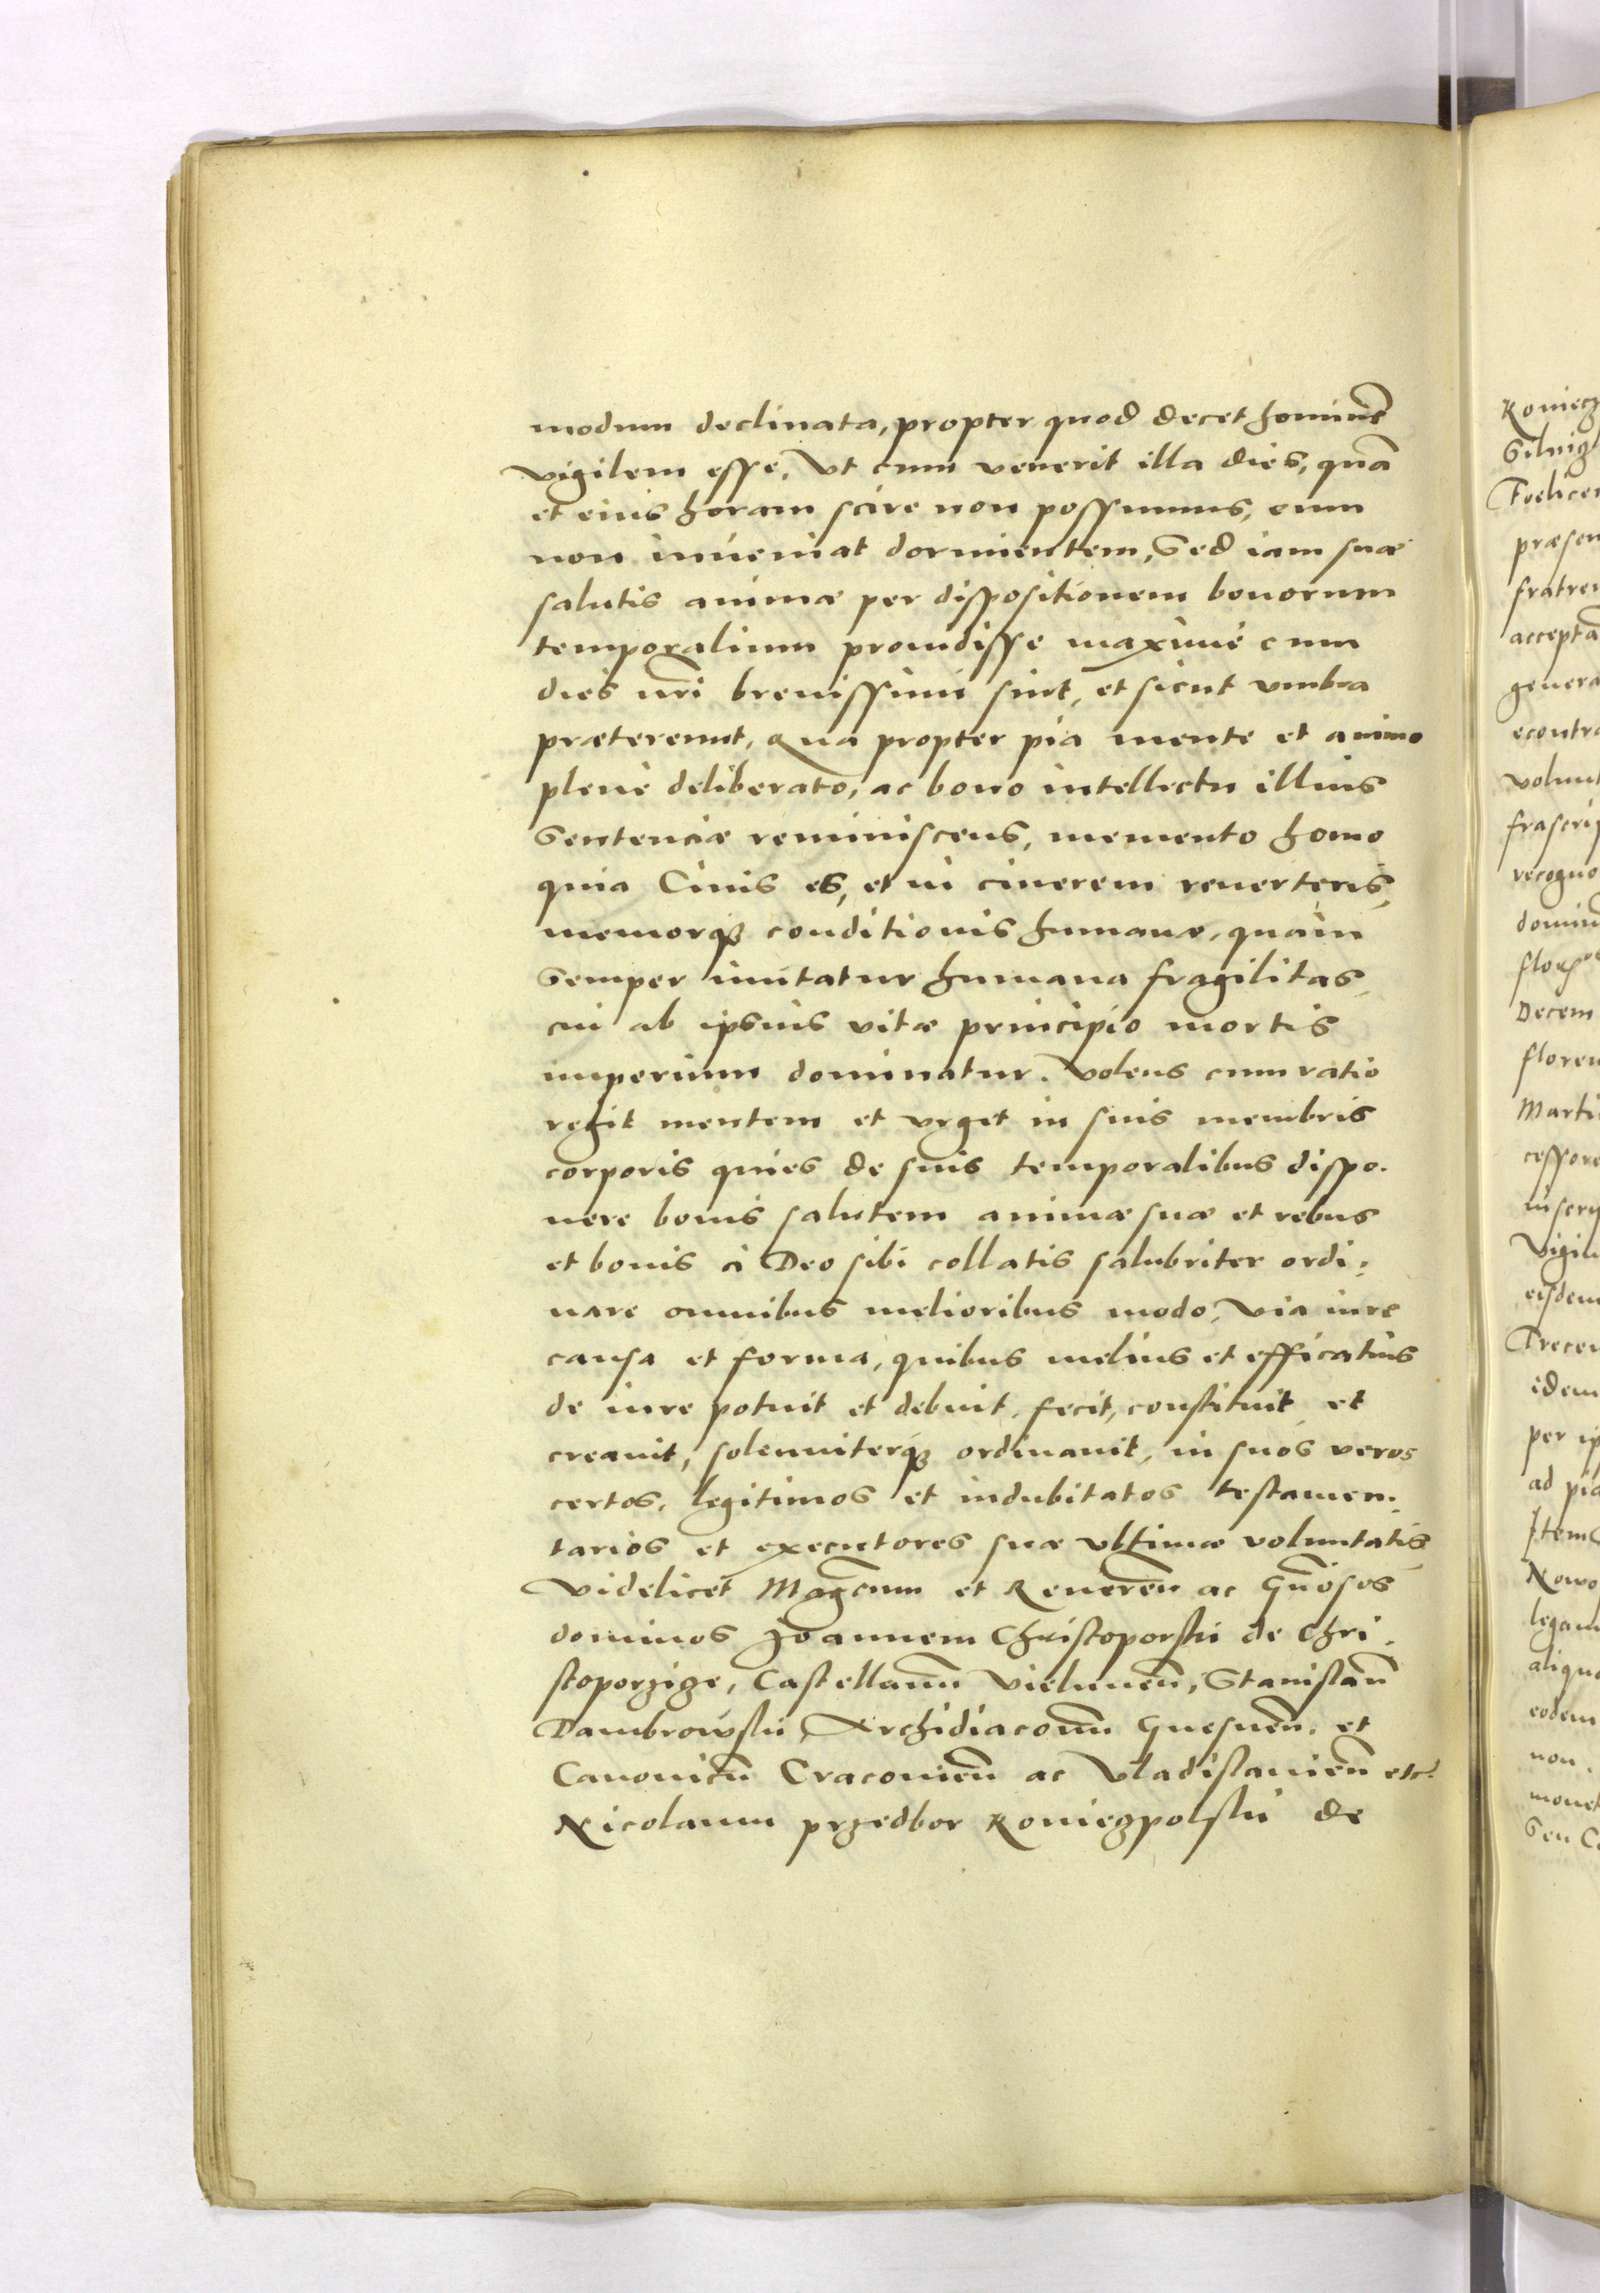 modum declinata, propter quod decet hominē
vigilem esse, Vt cum venerit illa dies, quā
et eius horam scire non possumus, eum
non inueniat dormientem, Sed iam suæ
salutis animæ per dispositionem bonorum
temporalium prouidisse maxime cum
dies nr̃i breuissimi sint, et sicut vmbra
prætereunt, Qua propter pia mente et animo
plene deliberato, ac bono intellectu illius
Sentenciæ reminiscens, memento homo
quia Cinis es, et in cinerem reuerteris,
memorq3 conditionis humanæ, quam
Semper imitatur humana fragilitas,
cui ab ipsius vitæ principio mortis
imperium dominatur. Volens cum ratio
regit mentem et vrget in suis membris
corporis quies de suis temporalibus dispo-
nere bonis salutem animæ suæ et rebus
et bonis à Deo sibi collatis salubriter ordi-
nare omnibus melioribus modo, via iure
causa et forma, quibus melius et efficatius
de iure potuit et debuit, fecit, constituit, et
creauit, solenniterq3 ordinauit, in suos veros
certos, legitimos et indubitatos testamen-
tarios et executores suæ vltimæ voluntatis,
Videlicet Magcum et Reueren̄ ac Gn̄osos
dominos Joannem Christoporski de Chri-
stoporzige, Castellanū Vielunen̄, Stanislaū
Dambrowski, Archidiaconū Gnesnen̄. et
Canonicū Cracouien̄ ac Vladislauien̄ etc.
Nicolaum przedbor Koniegpolski de
Konieg
Foelicem
præsen
fratrem
acceptā
genera
econtra
volunt
frascrip
recogno
dominū
Decem
floren
Marti
cessore
inscrip
Vigin
eisdem
Trecen
idem
per ip
ad pia
Item
Nowo
legam
aliqua
eodem
non
monet